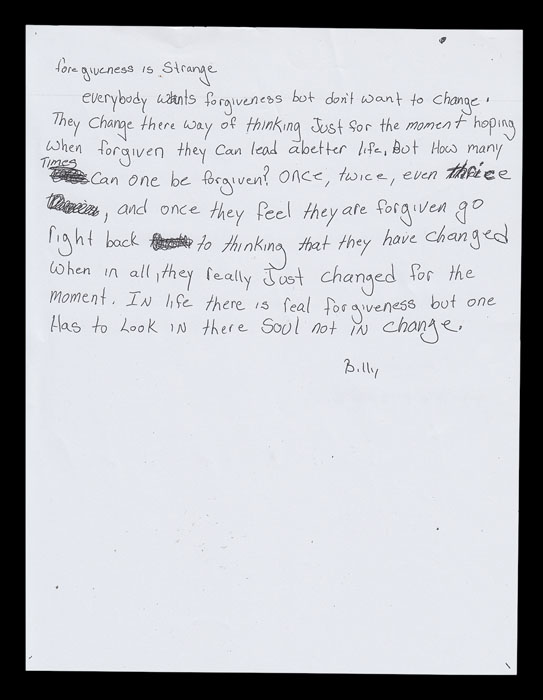 foregiveness is Strange
everybody wants forgiveness but don't want to change.
They change there way of thinking Just for the moment hoping
when forgiven they can lead abetter life. But How many
Times
can one be forgiven? Once, twice, even thrice
, and once they feel they are forgiven go
right back to thinking that they have changed
when in all, they really Just changed for the
moment. IN life there is real forgiveness but one
Has to Look IN there Soul not IN change.
Billy